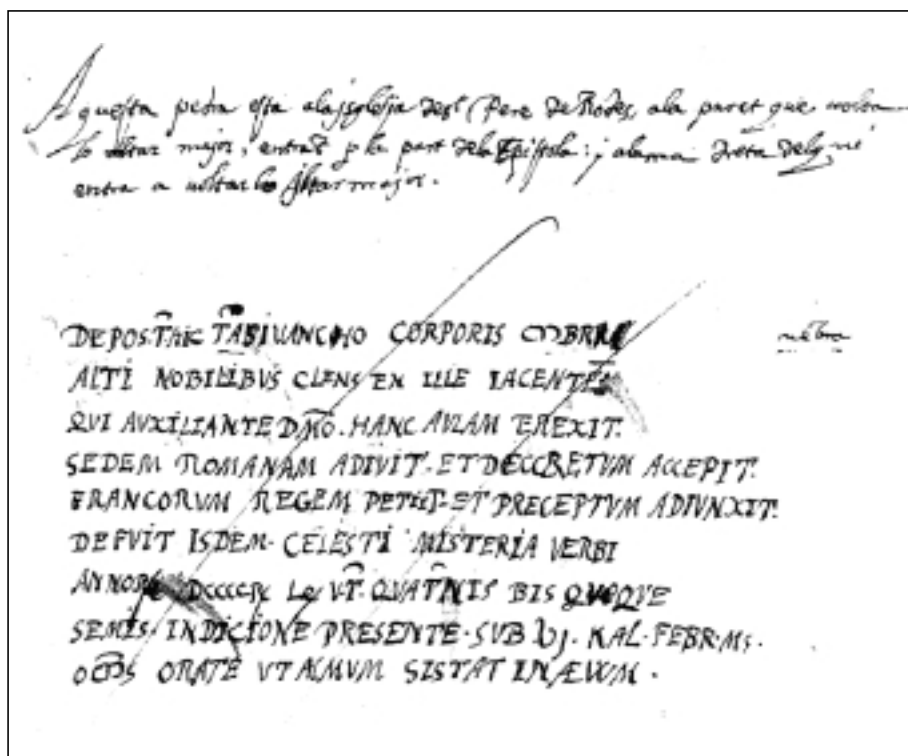 Aquesta pedra esta ala isglesia de st Pere de Rodes, ala paret que volta
lo altar major, entrat p la part dela Epistola: y ala ma dreta delq
entra a voltar lo Altar major.
DEPOS.T HIC TASIVANCHO CORPORIS
ALTI NOBILIBVS CLENS EX ILLE IACENTES
QVI AVXILIANTE DMO. HANC AVLAM EREXIT.
SEDEM ROMANAM ADIVIT. ET DECCRETVM ACCEPIT.
FRANCORVM REGEM PETIIT. ET PRECEPTVM ADIVNXIT.
DEFVIT ISDEM. CELESTI MISTERIA VERBI
VT. QVATNIS BIS QVOQVE
SEMIS. INDICIONE PRESENTE. SVB KAL. FEBR. MS.
ORATE VT ALMVM SISTAT IN ÆVVM.